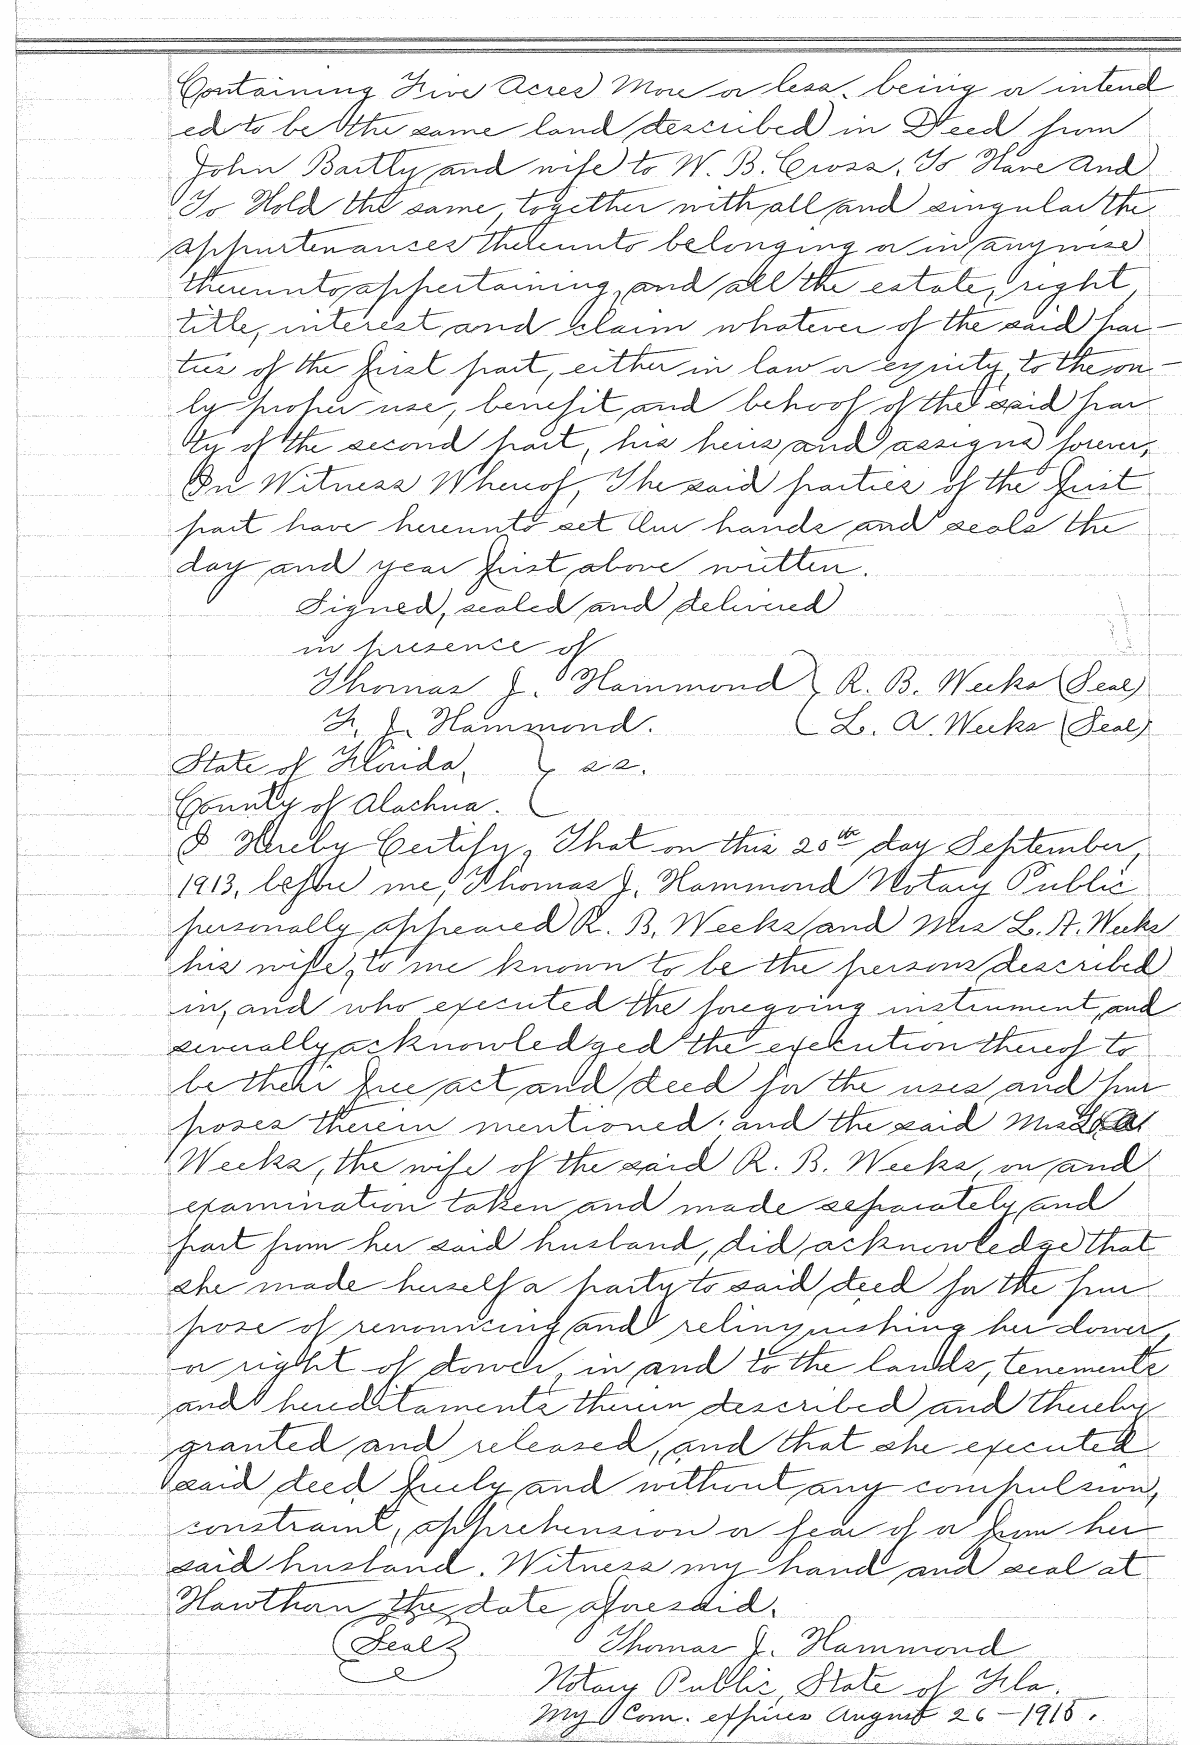 Containing Five Acres More or less, being or intend
ed to be the same land described in Deed from
John Bartly and wife to W. B. Cross. To Have And
To Hold the same, together with all and singular the
appurtenances thereunto belonging or in anywise
thereunto appertaining, and all the estate, right,
title, interest and claim whatever of the said par-
ties of the first part, either in law or equity, to the on-
ly proper use, benefit and behoof of the said par
ty of the second part, his heirs and assigns forever,
In Witness Whereof, The said parties of the first
part have hereunto set Our hands and seals the
day and year first above written.
Signed, sealed and delivered
in presence of
Thomas J. Hammond } R. B. Weeks (Seal)
F. J. Hammond. { L. A. Weeks (Seal)
State of Florida, } ss.
County of Alachua.
I Hereby Certify, That on this 20th day September,
1913, before me, Thomas J. Hammond Notary Public
personally appeared R. B. Weeks and Mrs L. A. Weeks
his wife, to me known to be the persons described
in, and who executed the foregoing instrument, and
severally acknowledged the execution thereof to
be their free act and deed for the uses and pur
poses therein mentioned; and the said Mrs L. A.
Weeks, the wife of the said R. B. Weeks, on and
examination taken and made separately and
part from her said husband, did acknowledge that
she made herself a party to said deed for the pur
pose of renouncing and relinquishing her dower,
or right of dower, in and to the lands, tenements
and hereditaments therein described and thereby
granted and released, and that she executed
said deed freely and without any compulsion,
constraint, apprehension or fear of or from her
said husband. Witness my hand and seal at
Hawthorn the date aforesaid.
(Seal) Thomas J. Hammond
Notary Public, State of Fla.
My Com. expires August 26-1915.